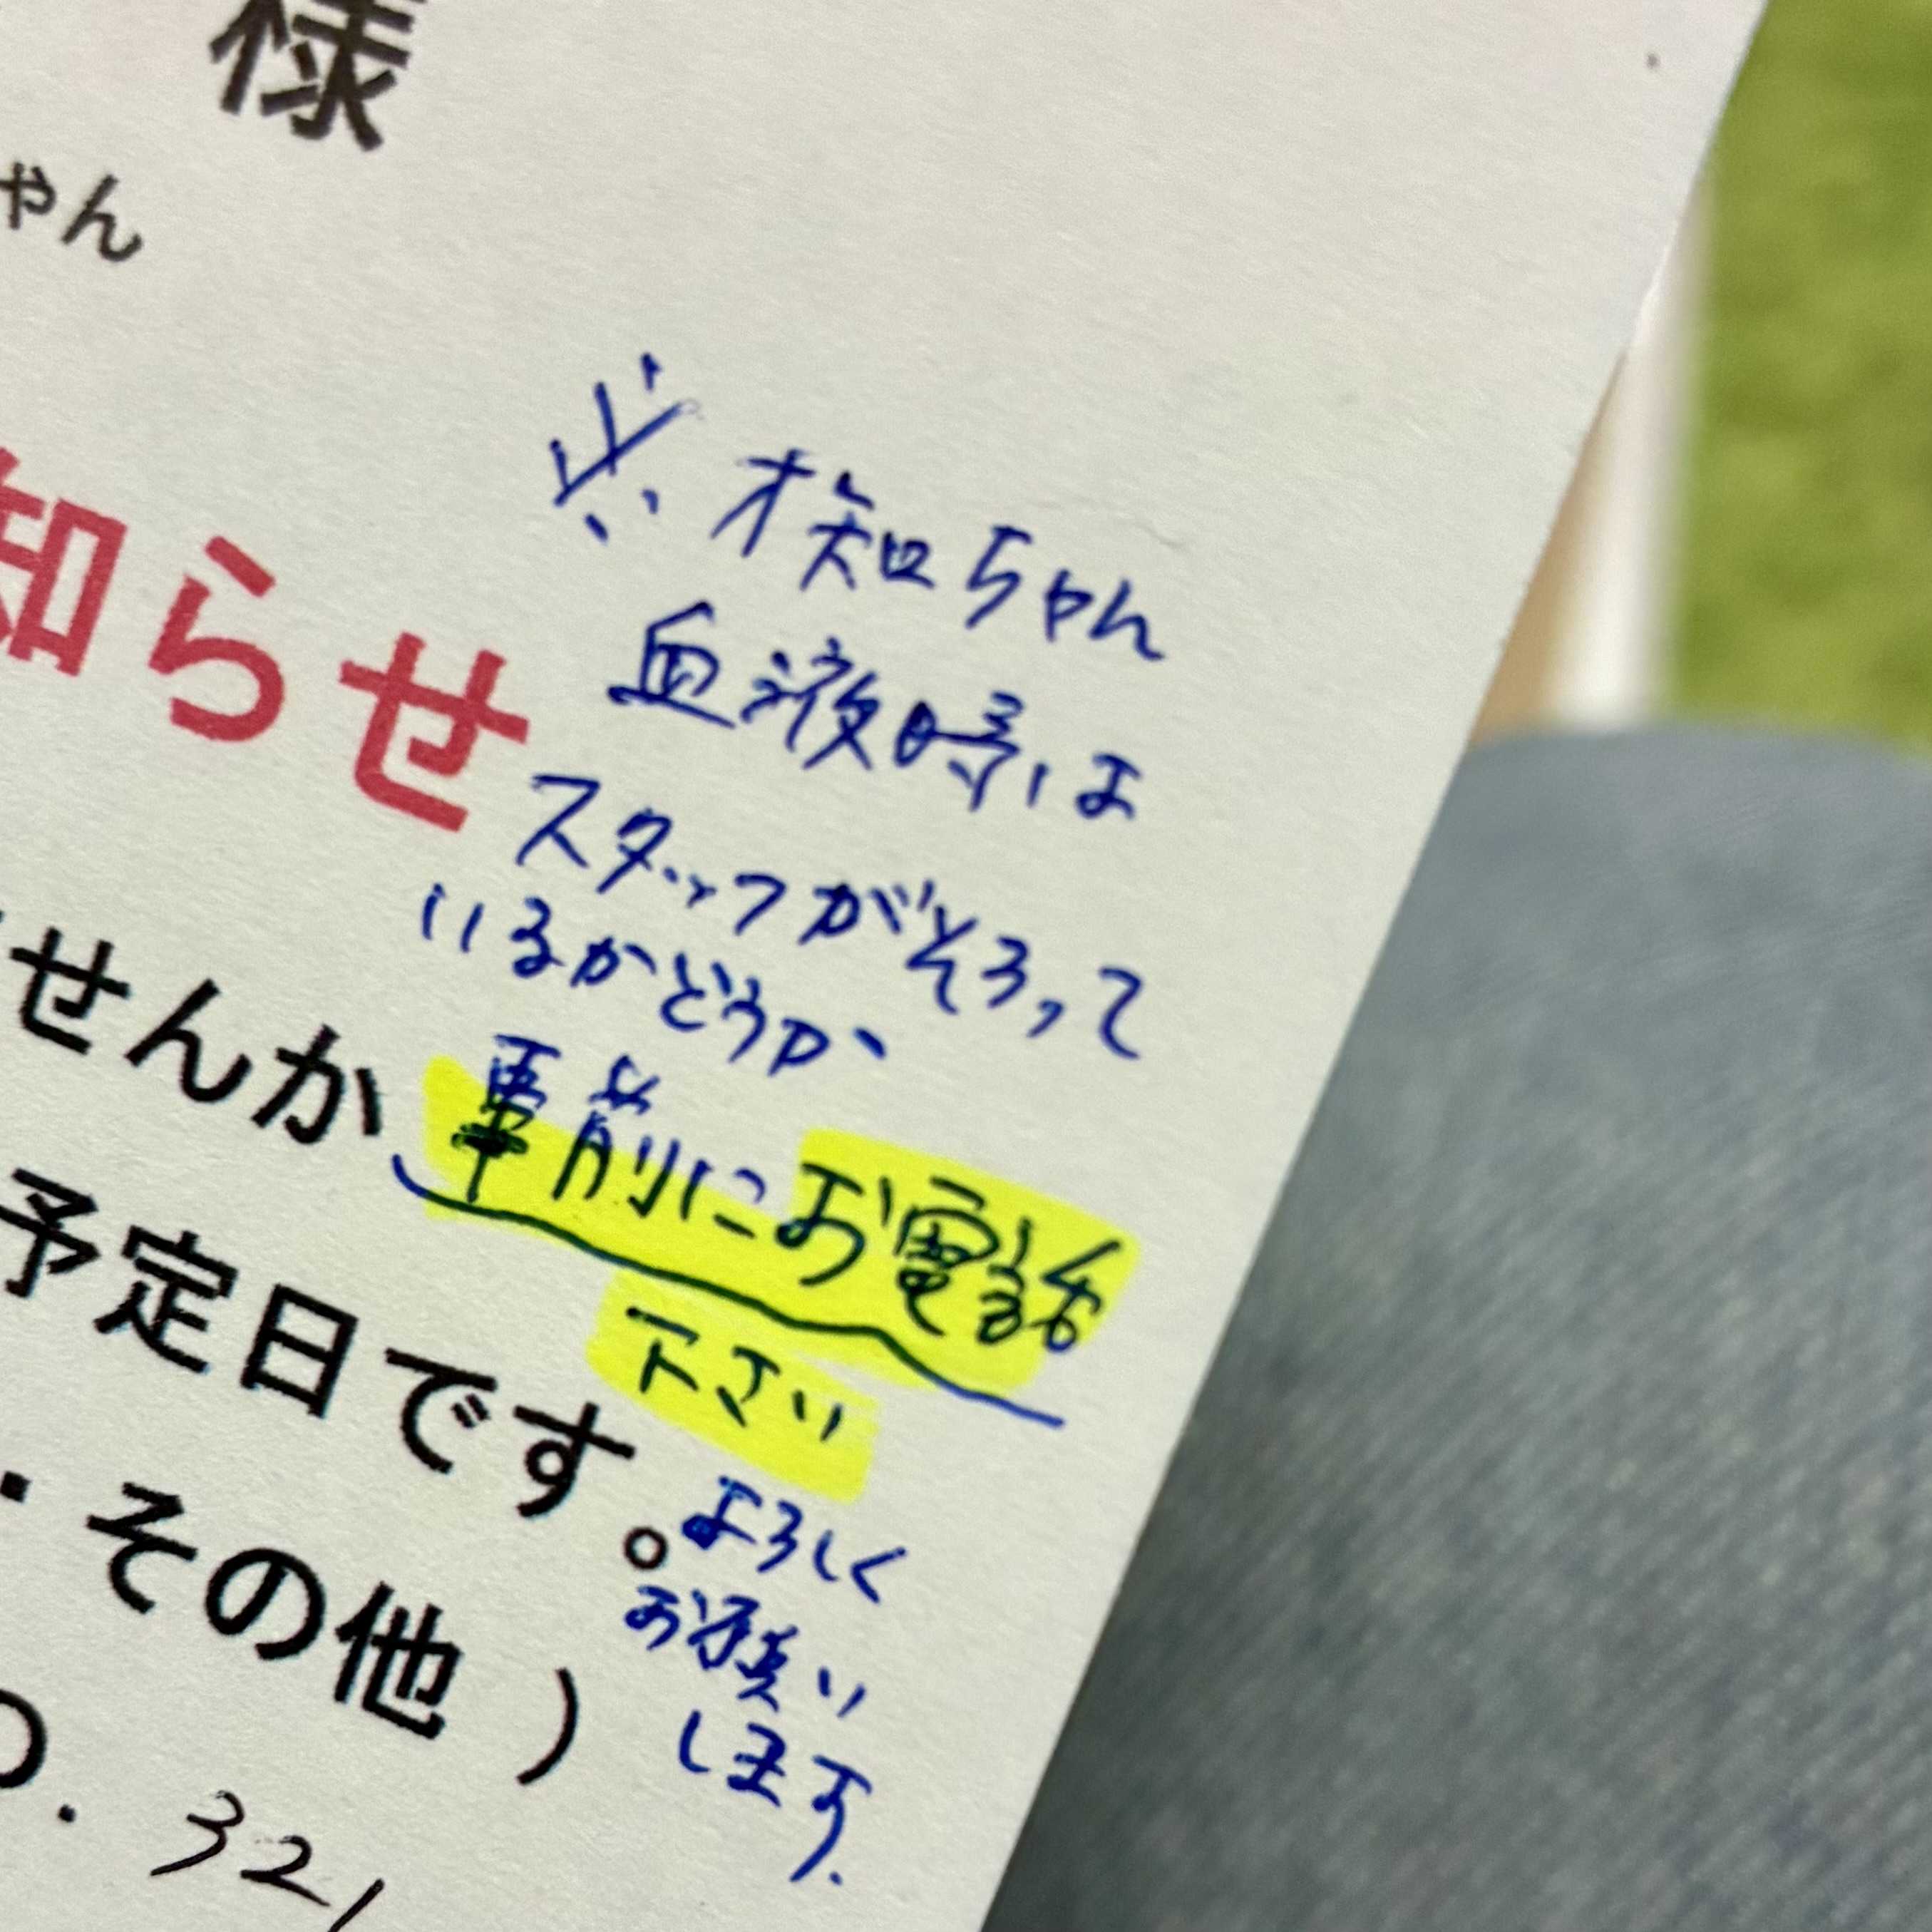 様
ゃん
知らせ
せんか
予定日です。
・その他 )
321
※才知ちゃん
血液時は
スタッフがそろって
いるかどうか
事前にお電話
下さい
よろしく
お願い
します.